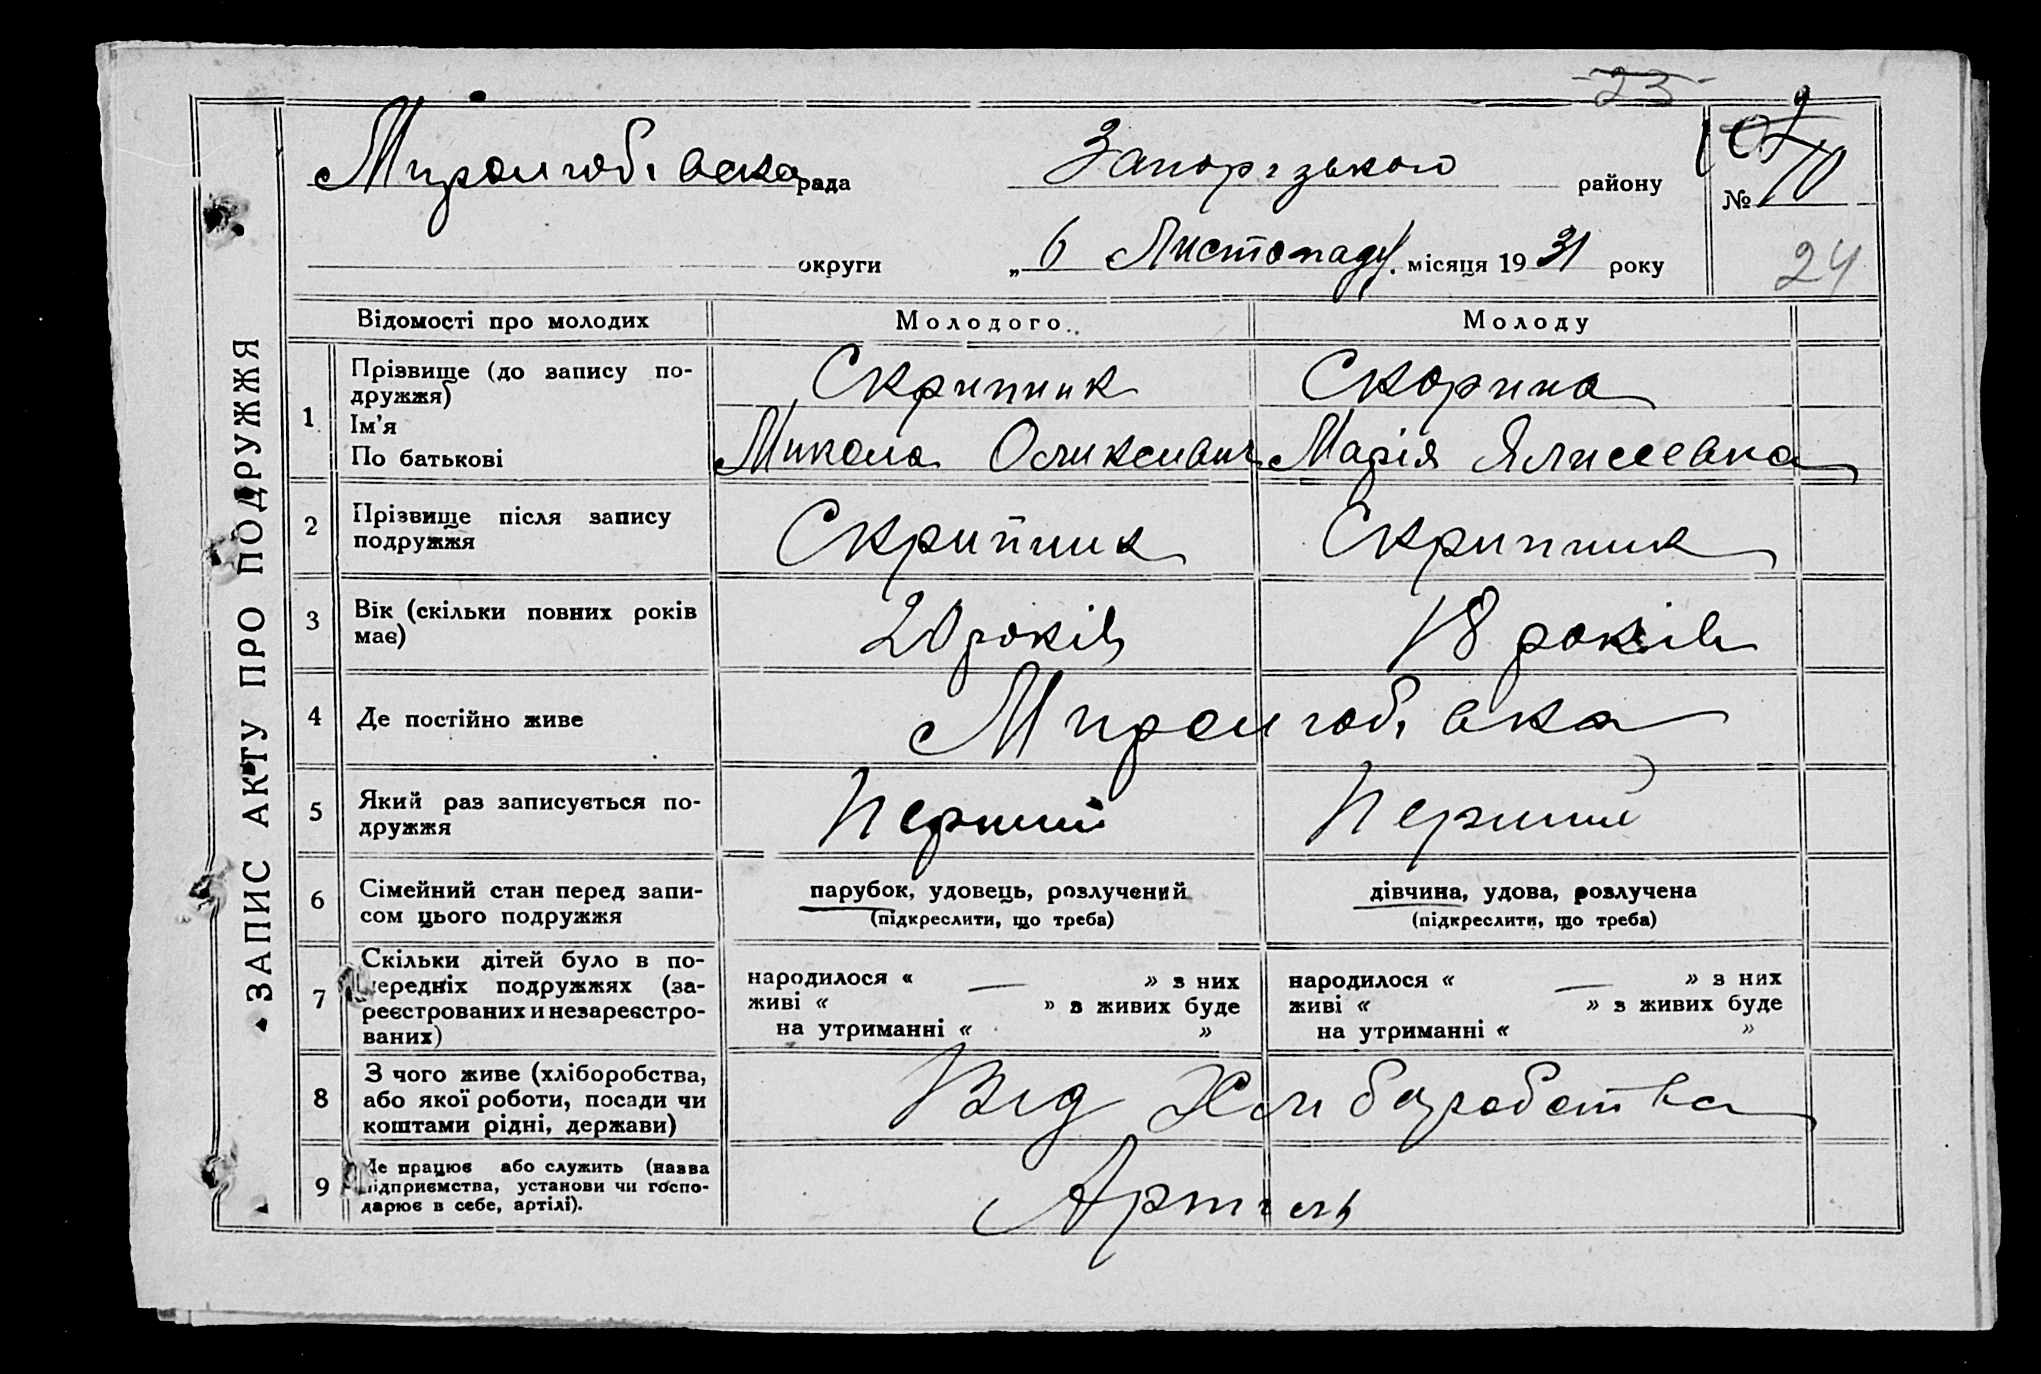 -23-
Миролюбівська рада Запорізького району
№ 10
округи „6 Листопаду місяця 1931 року
24
ЗАПИС АКТУ ПРО ПОДРУЖЖЯ
Відомості про молодих Молодого Молоду
1 Прізвище (до запису по-
дружжя) Скрипник Скорина
Ім'я
По батькові Микола Марія
2 Прізвище після запису
подружжя Скрипник Скрипник
3 Вік (скільки повних років
має) 20 років 18 років
4 Де постійно живе Миролюбівка
5 Який раз записується по-
дружжя Перший Перший
6 Сімейний стан перед запи-
сом цього подружжя
парубок, удовець, розлучений
(підкреслити, що треба)
дівчина, удова, розлучена
(підкреслити, що треба)
7 Скільки дітей було в по-
передніх подружжях (за-
реєстрованих и незареєстро-
ваних)
народилося « — » з них
живі « » з живих буде
на утриманні « »
народилося « — » з них
живі « » з живих буде
на утриманні « »
8 З чого живе (хліборобства,
або якої роботи, посади чи
коштами рідні, держави) Від Хліборобства
9 Де працює або служить (назва
підприємства, установи чи госпо-
дарює в себе, артілі). Артіль